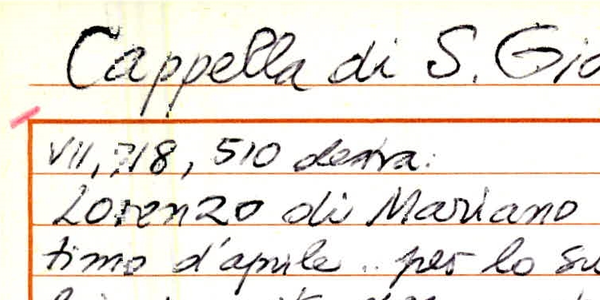 Cappella di S. Gio
VII, 718, 510 destra:
Lorenzo di Mariano
timo d'aprile .. per lo su